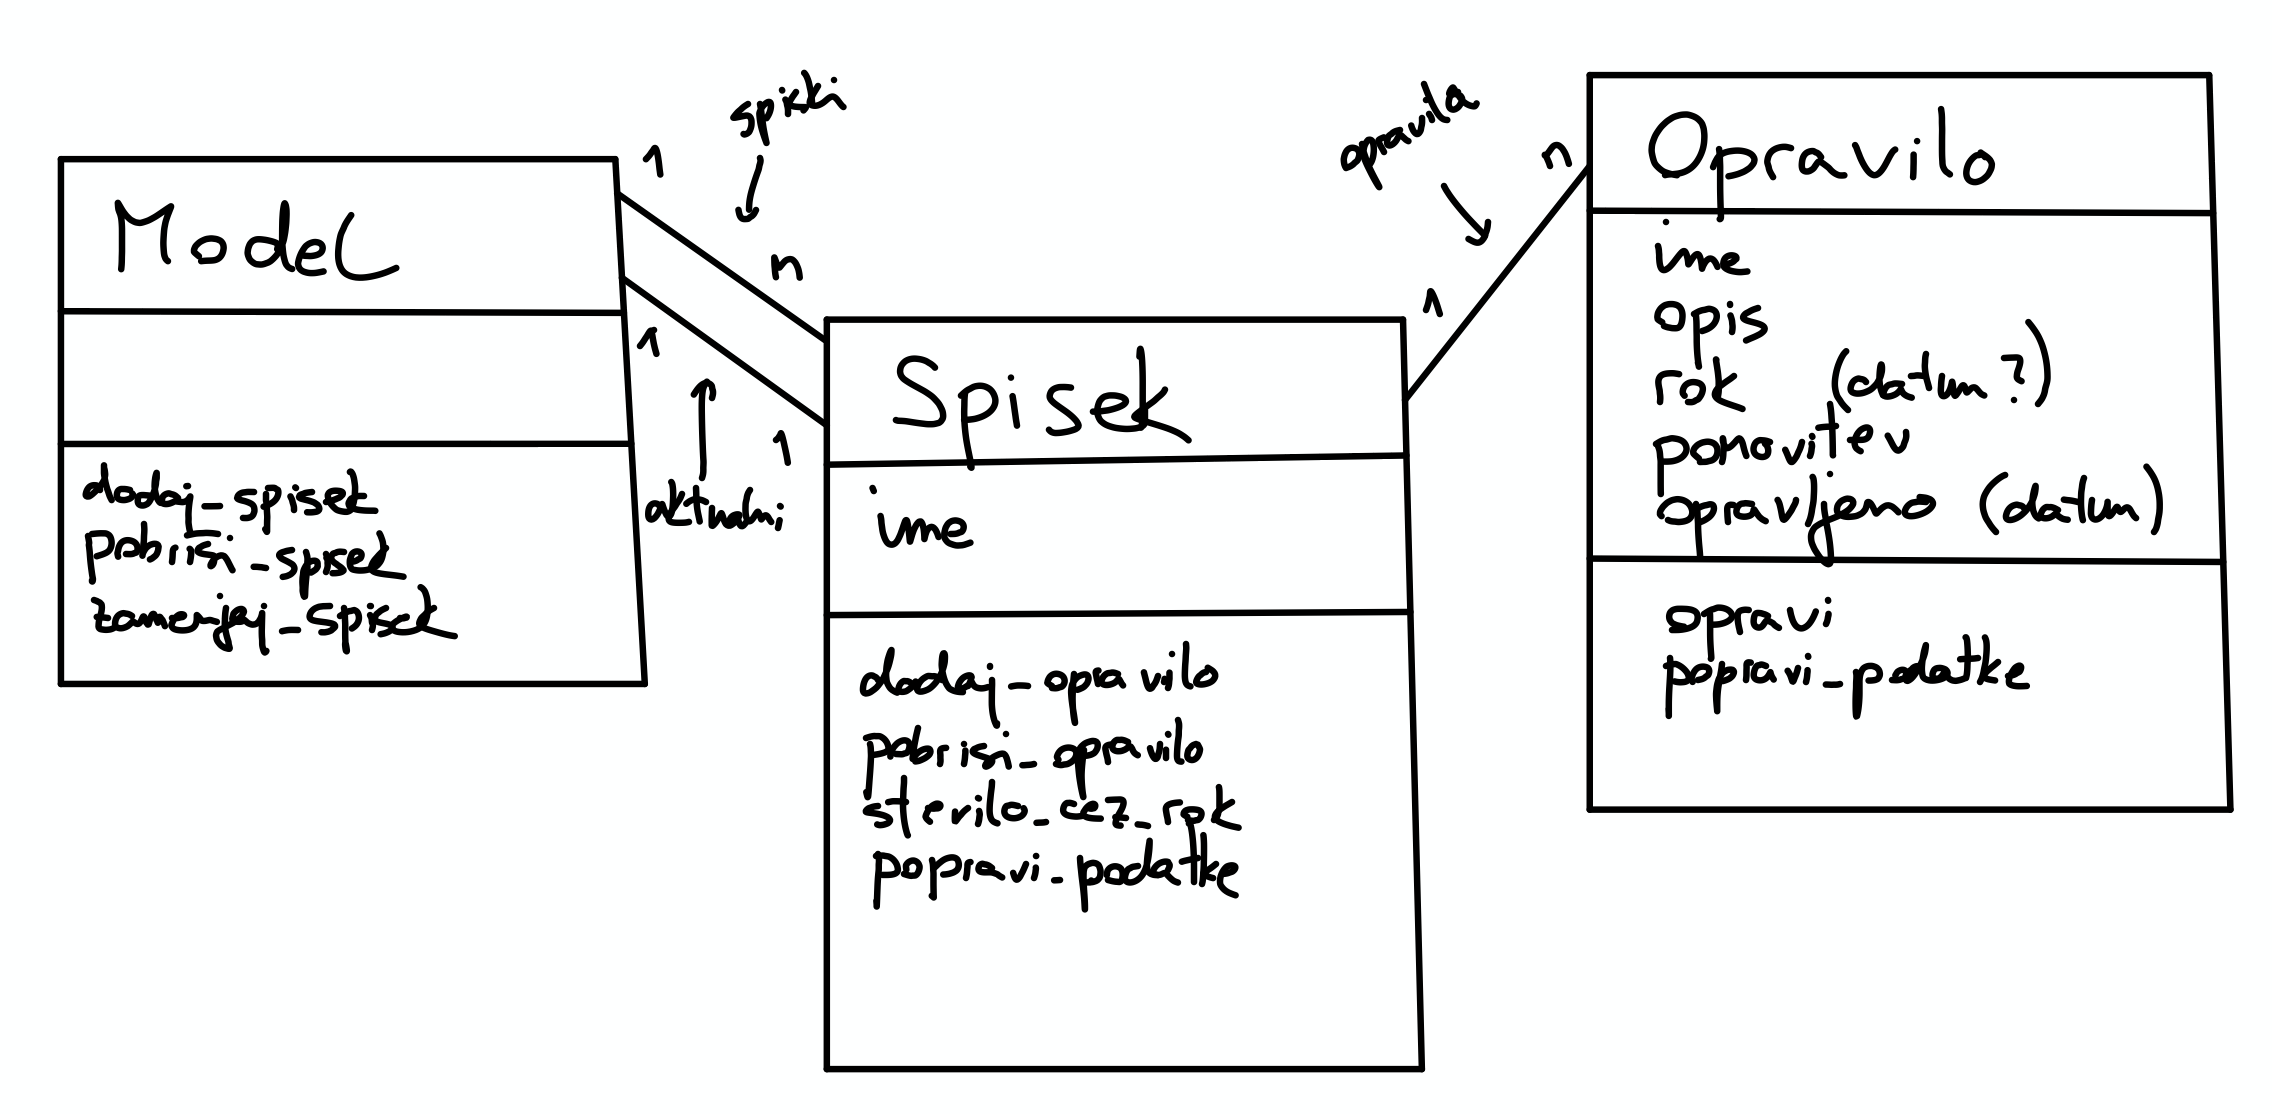 Model
dodaj_spisek
pobrisi_spisek
zamenjaj_spisek
1
spiski
n
1
aktualni
1
Spisek
ime
dodaj_opravilo
pobrisi_opravilo
stevilo_cez_rok
popravi_podatke
opravila
1
n
Opravilo
ime
opis
rok (datum?)
ponovitev
opravljeno (datum)
opravi
popravi_podatke